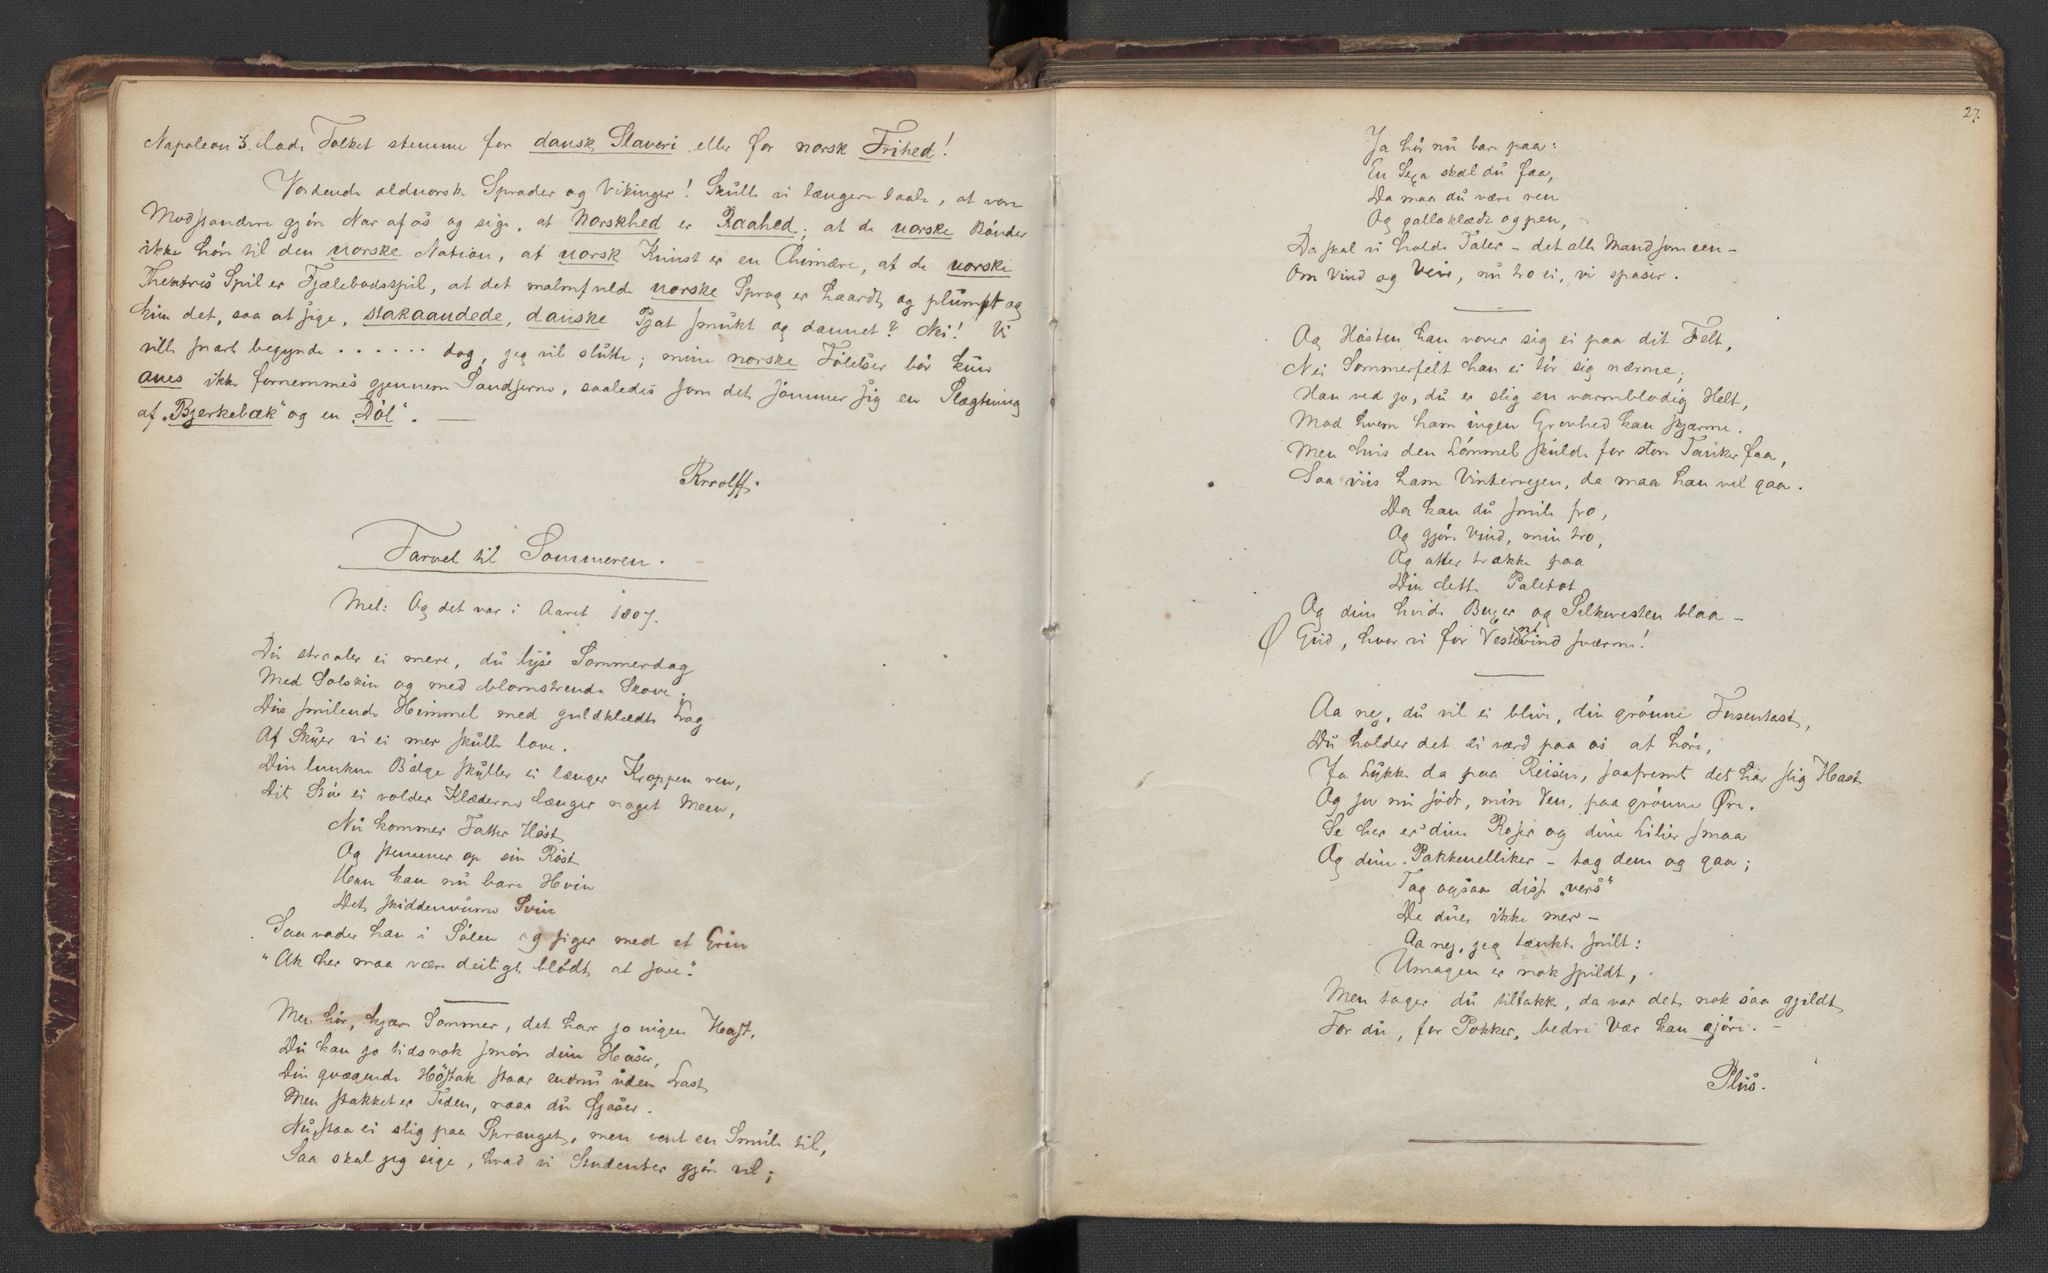 Napoleon 3. lade Folket stemme for dansk Slaveri eller for norsk Frihed!
Vordende oldnorske Sprader og Vikinger! Skulle vi længere taale, at vore
Modstandere gjøre Nar af os og sige, at Norskhed er Raahed; at de norske Bønder
ikke høre til den norske Nation, at norsk Kunst er en Chimære, at de norske
Theatres Spil er Fjælebodsspil, at det malmfulde norske Sprog er haardt og plumpt og
kun det, saa at sige, stakaandede, danske Pjat smukt og dannet? Nei! Vi
ville snart begynde . . . . . . dog, jeg vil slutte; mine norske Følelser bør kun
anes ikke fornemmes gjennem Sandserne, saaledes som det sømmer sig en Slægtning
af „Bjerkebæk" og en „Døl". —
Rrrolff.
Farvel til Sommeren.
Mel: Og det var i Aaret 1807.
Du straaler ei mere, du lyse Sommerdag
Med Solskin og med blomstrende Skove.
Din smilende Himmel med guldklædte Lag
Af Skyer vi ei mer skulle love.
Din lunkne Bølge skyller ei længer Kroppen ren,
Dit Støv ei volder Klæderne længer noget Meen,
Nu kommer Fatter Høst
Og stemmer op sin Røst
Han kan nu bare Hvin
Det skiddenvurne Svin
Saa vader han i Sølen og siger med et Grin
"Ak her maa være deiligt blødt at sove."
Men hør, kjære Sommer, det har jo ingen Hast,
Du kan jo tidsnok smøre dine Haser,
Din qvægende Høstak staar endnu uden Last
Men stakket er Tiden, naar du fjaser.
Nu staa ei slig paa Spranget, men vent en Smule til,
Saa skal jeg sige, hvad vi Studenter gjøre vil;
27.
Ja hør nu bare paa:
En Sexa skal du faa,
Da maa du være ren
Og gallaklædt og pen,
Da skal vi holde Taler – det alle Mand som een –
Om Vind og Veir, nu tro ei, vi spaser.
Og Høsten han vover sig ei paa dit Felt,
Nei Sommerfelt han ei tør sig nærme;
Han ved jo, du er slig en varmblodig Helt,
Mod hvem ham ingen Grovhed kan skjærme.
Men hvis den Lømmel skulde for store Tanker faa,
Saa viis ham Vinterveien, da maa han vel gaa.
Da kan du smile fro,
Og gjøre Vind, min tro,
Og atter trække paa
Din lette Paletot
Og dine hvide Buxer og Silkevesten blaa –
Gud, hvor vi for Vestenvind sværme!
Aa nej, du vil ei blive, din grønne Fusentast,
Du holder det ei værd paa os at høre,
Ja Lykke da paa Reisen, saafremt det har slig Hast
Og sov nu sødt, min Ven, paa grønne Øre.
Se her er dine Roser og dine Lilier smaa
Og dine Pakkenelliker – tag dem og gaa;
Tag ogsaa disse „vers"
De due ikke mer –
Aa nej, jeg tænkte snilt:
Umagen er nok spildt,
Men tager du tiltakke, da var det nok saa gjildt
For du, for Pokker, bedre Vær kan gjøre. –
Plus.